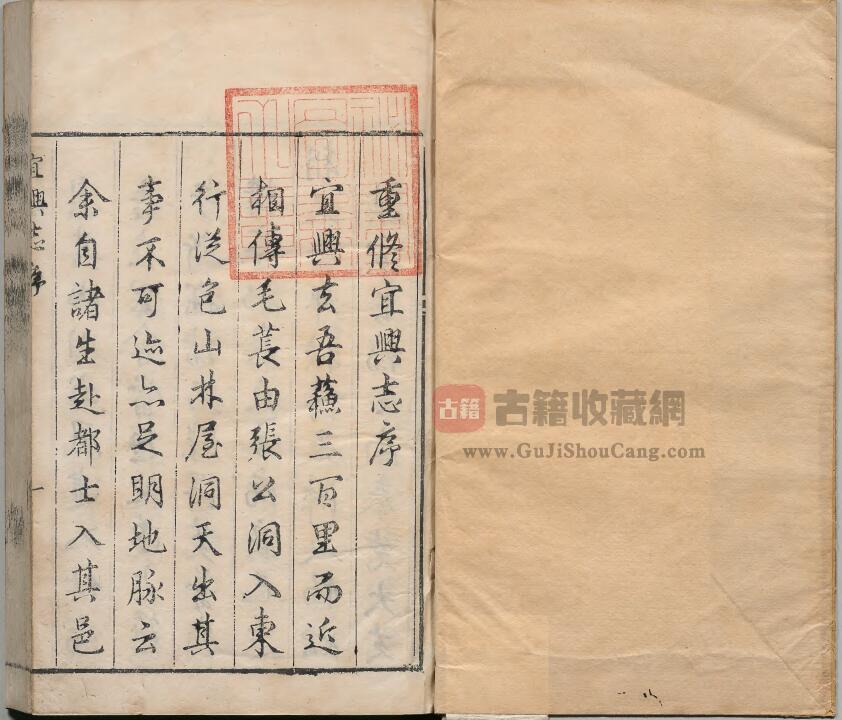 重修宜興志序
宜興去吾蘓三百里而近
相傳毛萇由張公洞入東
行從包山林屋洞天出其
事不可迹亦足明地脉云
余自諸生赴都士入其邑
宜興志序
一
古籍
古籍收藏網
www.GuJiShouCang.com